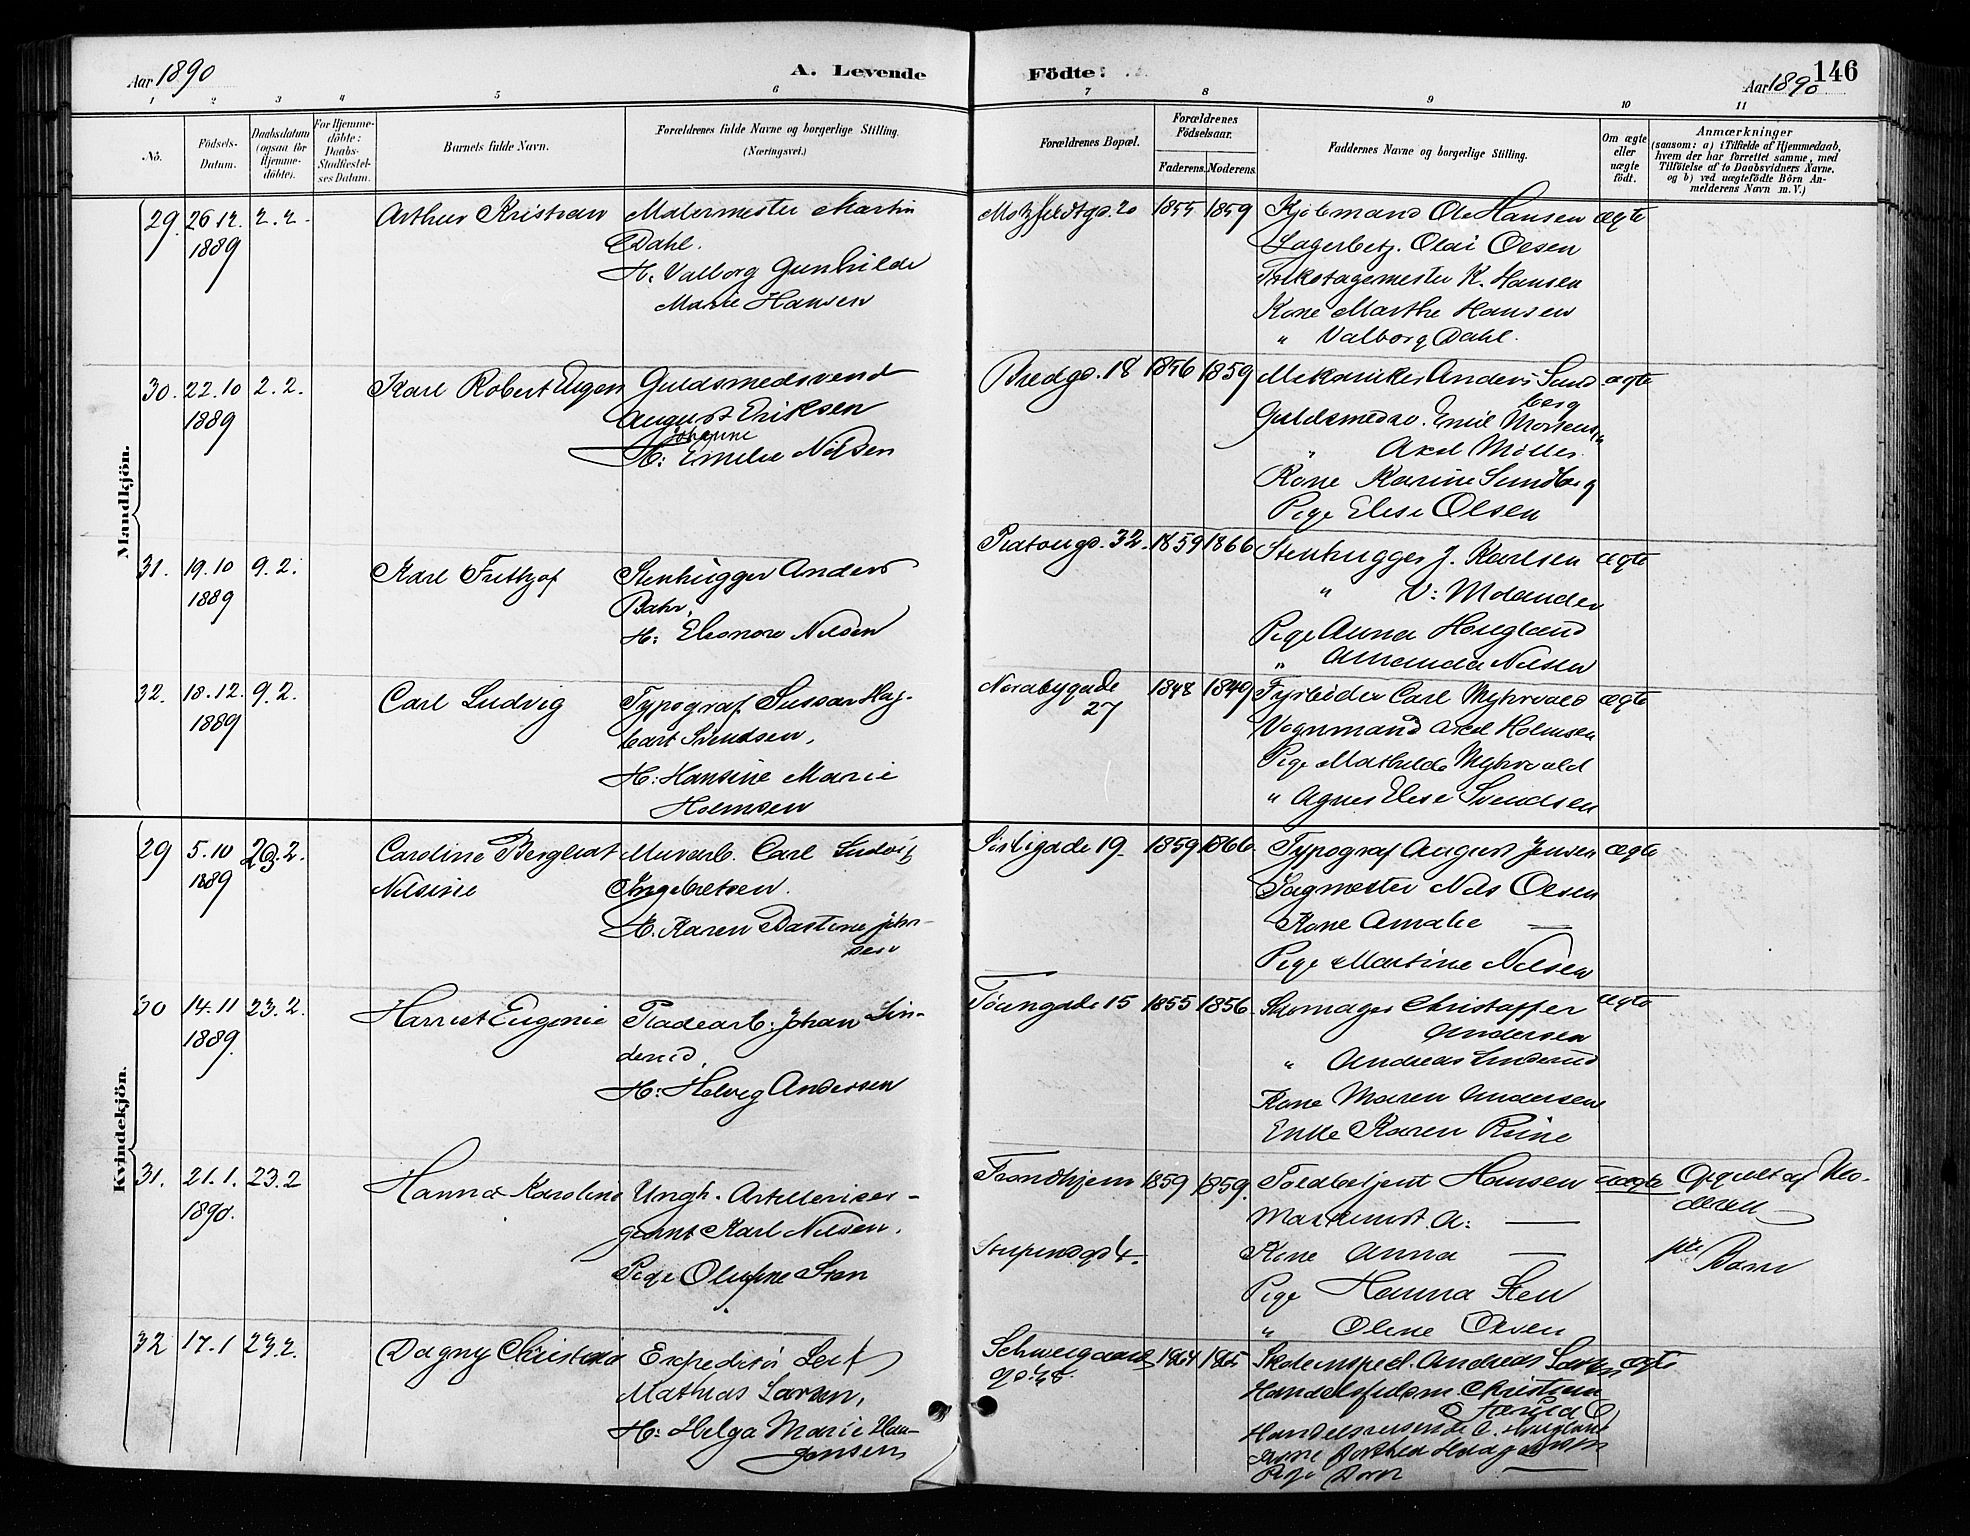 Aar 1890
A. Levende
Födte:
Aar 1890
146
1 2 3 4 5 6 7 8 9 10 11
No.
Födsels-
Datum.
Daabsdatum
(ogsaa for
Hjemme-
döbte).
For Hjemme-
döbte:
Daabs-
Stadfæstel-
ses Datum.
Barnets fulde Navn.
Forældrenes fulde Navne og borgerlige Stilling.
(Næringsvei.)
Forældrenes Bopæl.
Forældrenes
Födselsaar.
Faderens. Moderens.
Faddernes Navne og borgerlige Stilling.
Om ægte
eller
uægte
födt.
Anmærkninger
(saasom: a) i Tilfælde af Hjemmedaab,
hvem der har forrettet samme, med
Tilföielse af to Daabsvidners Navne.
og b) ved uægtefödte Börn An-
melderens Navn m. V.)
Mandkjön.
29. 26.12. 1889
2.2.
Arthur Kristian
Malermester Martin
Dahl.
H: Valborg Gunhilde
Marie Hansen
Motzfeldtgd. 20
1855 1859
Kjöbmand Ole Hansen
Lagerbetj. Olai Olsen
Trikotagemester K. Hansen
Kone Marthe Hansen
" Valborg Dahl.
ægte
30. 22.10 1889
2.2.
Karl Robert Eugen
Guldsmedsvend
August Eriksen
Johanne
H: Emelie Nilsen
Bredgd. 18
1856 1859
Mekaniker Anders Sund
berg
Guldsmedsv. Emil Mortensen
" Axel Möller
Kone Karine Sundberg
Pige Elise Olsen
ægte
31. 19.10 1889
9.2.
Karl Frithjof
Stenhugger Anders
H: Eleonore Nilsen
32. 1859 1866
Stenhugger J. Karlsen
" V: Molander
Pige Anna Hougland
" Amanda Nilsen
ægte
32. 18.12. 1889
9.2.
Carl Ludvig
Typograf Hag-
bart Svendsen,
H: Hansine Marie
Holmsen
Nordbygade
27
1848 1849
Fyrböder Carl Myhrvold
Vognmand Axel Holmsen
Pige Mathilde Myhrvold
" Agnes Elise Svendsen
ægte
Kvindekjön.
29 5.10 1889
23.2.
Caroline Bergliot
Nilsine
Murarb. Carl Ludvig
Ingebretsen.
H. Karen Bastine John-
sen
19. 1859 1866.
Typograf August Jensen
Sagmester Nils Olsen
Kone Amalie —
Pige Martine Nilsen
ægte
30 14.11 1889.
23.2.
Harriet Eugenie
Pladearb: Johan Lin-
derud,
H: Helvig Andersen
Töiengade 15
1855 1856.
Skomager Christoffer
Andersen
" Andreas Linderud
Kone Maren Andersen
Enke Karen Rüne
ægte
31. 21.1. 1890.
23.2
Hanna Karoline
Ungk. Artilleriser-
giant Karl Nilsen.
Pige Olufine Sten
Trondhjem
Stupendgd 4.
1859 1859.
Toldbetjent Hansen
Maskinist A: —
Kone Anna —
Pige Hanna Sten
" Oline Olsen
uægte
Opgivet af Mo-
deren
Barn
32 17.1
23.2.
Dagny Christine
Expeditör Leif
Mathias Larsen,
H: Helga Marie Han-
Jensen
Schweigaards
gd. 48.
1864 1865
Skoleinspect. Andreas Larsen
Handelsfuldm. Christian
Handelsreisende C. Hougland
Kone Dorthea
Pige Dorr —
ægte